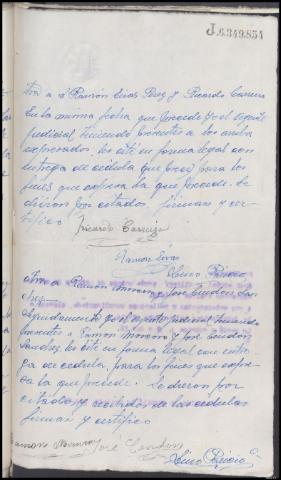 J.6.349.854
Otra a D. Ramón Elias Perez y Ricardo Carreras
En la misma fecha que precede yo el Agente
judicial, teniendo presentes a los arriba
expresados, les cité en forma legal con
entrega de cédula que para los
fines que expresa la que precede. Se
dieron por citados, firman y cer-
tifico
Ricardo Carreras
Ramon Elias
Otra a Ramon Moreno y José Cendon San-
chez
Seguidamente yo el Agente judicial teniendo
presentes a Ramon Moreno y José Cendon
Sanchez, les cité en forma legal con entre-
ga de cedula, para los fines que expre-
sa la que precede. Se dieron por
citados y recibidos de las cedulas
firman y certifico
Ramon Moreno José Cendon